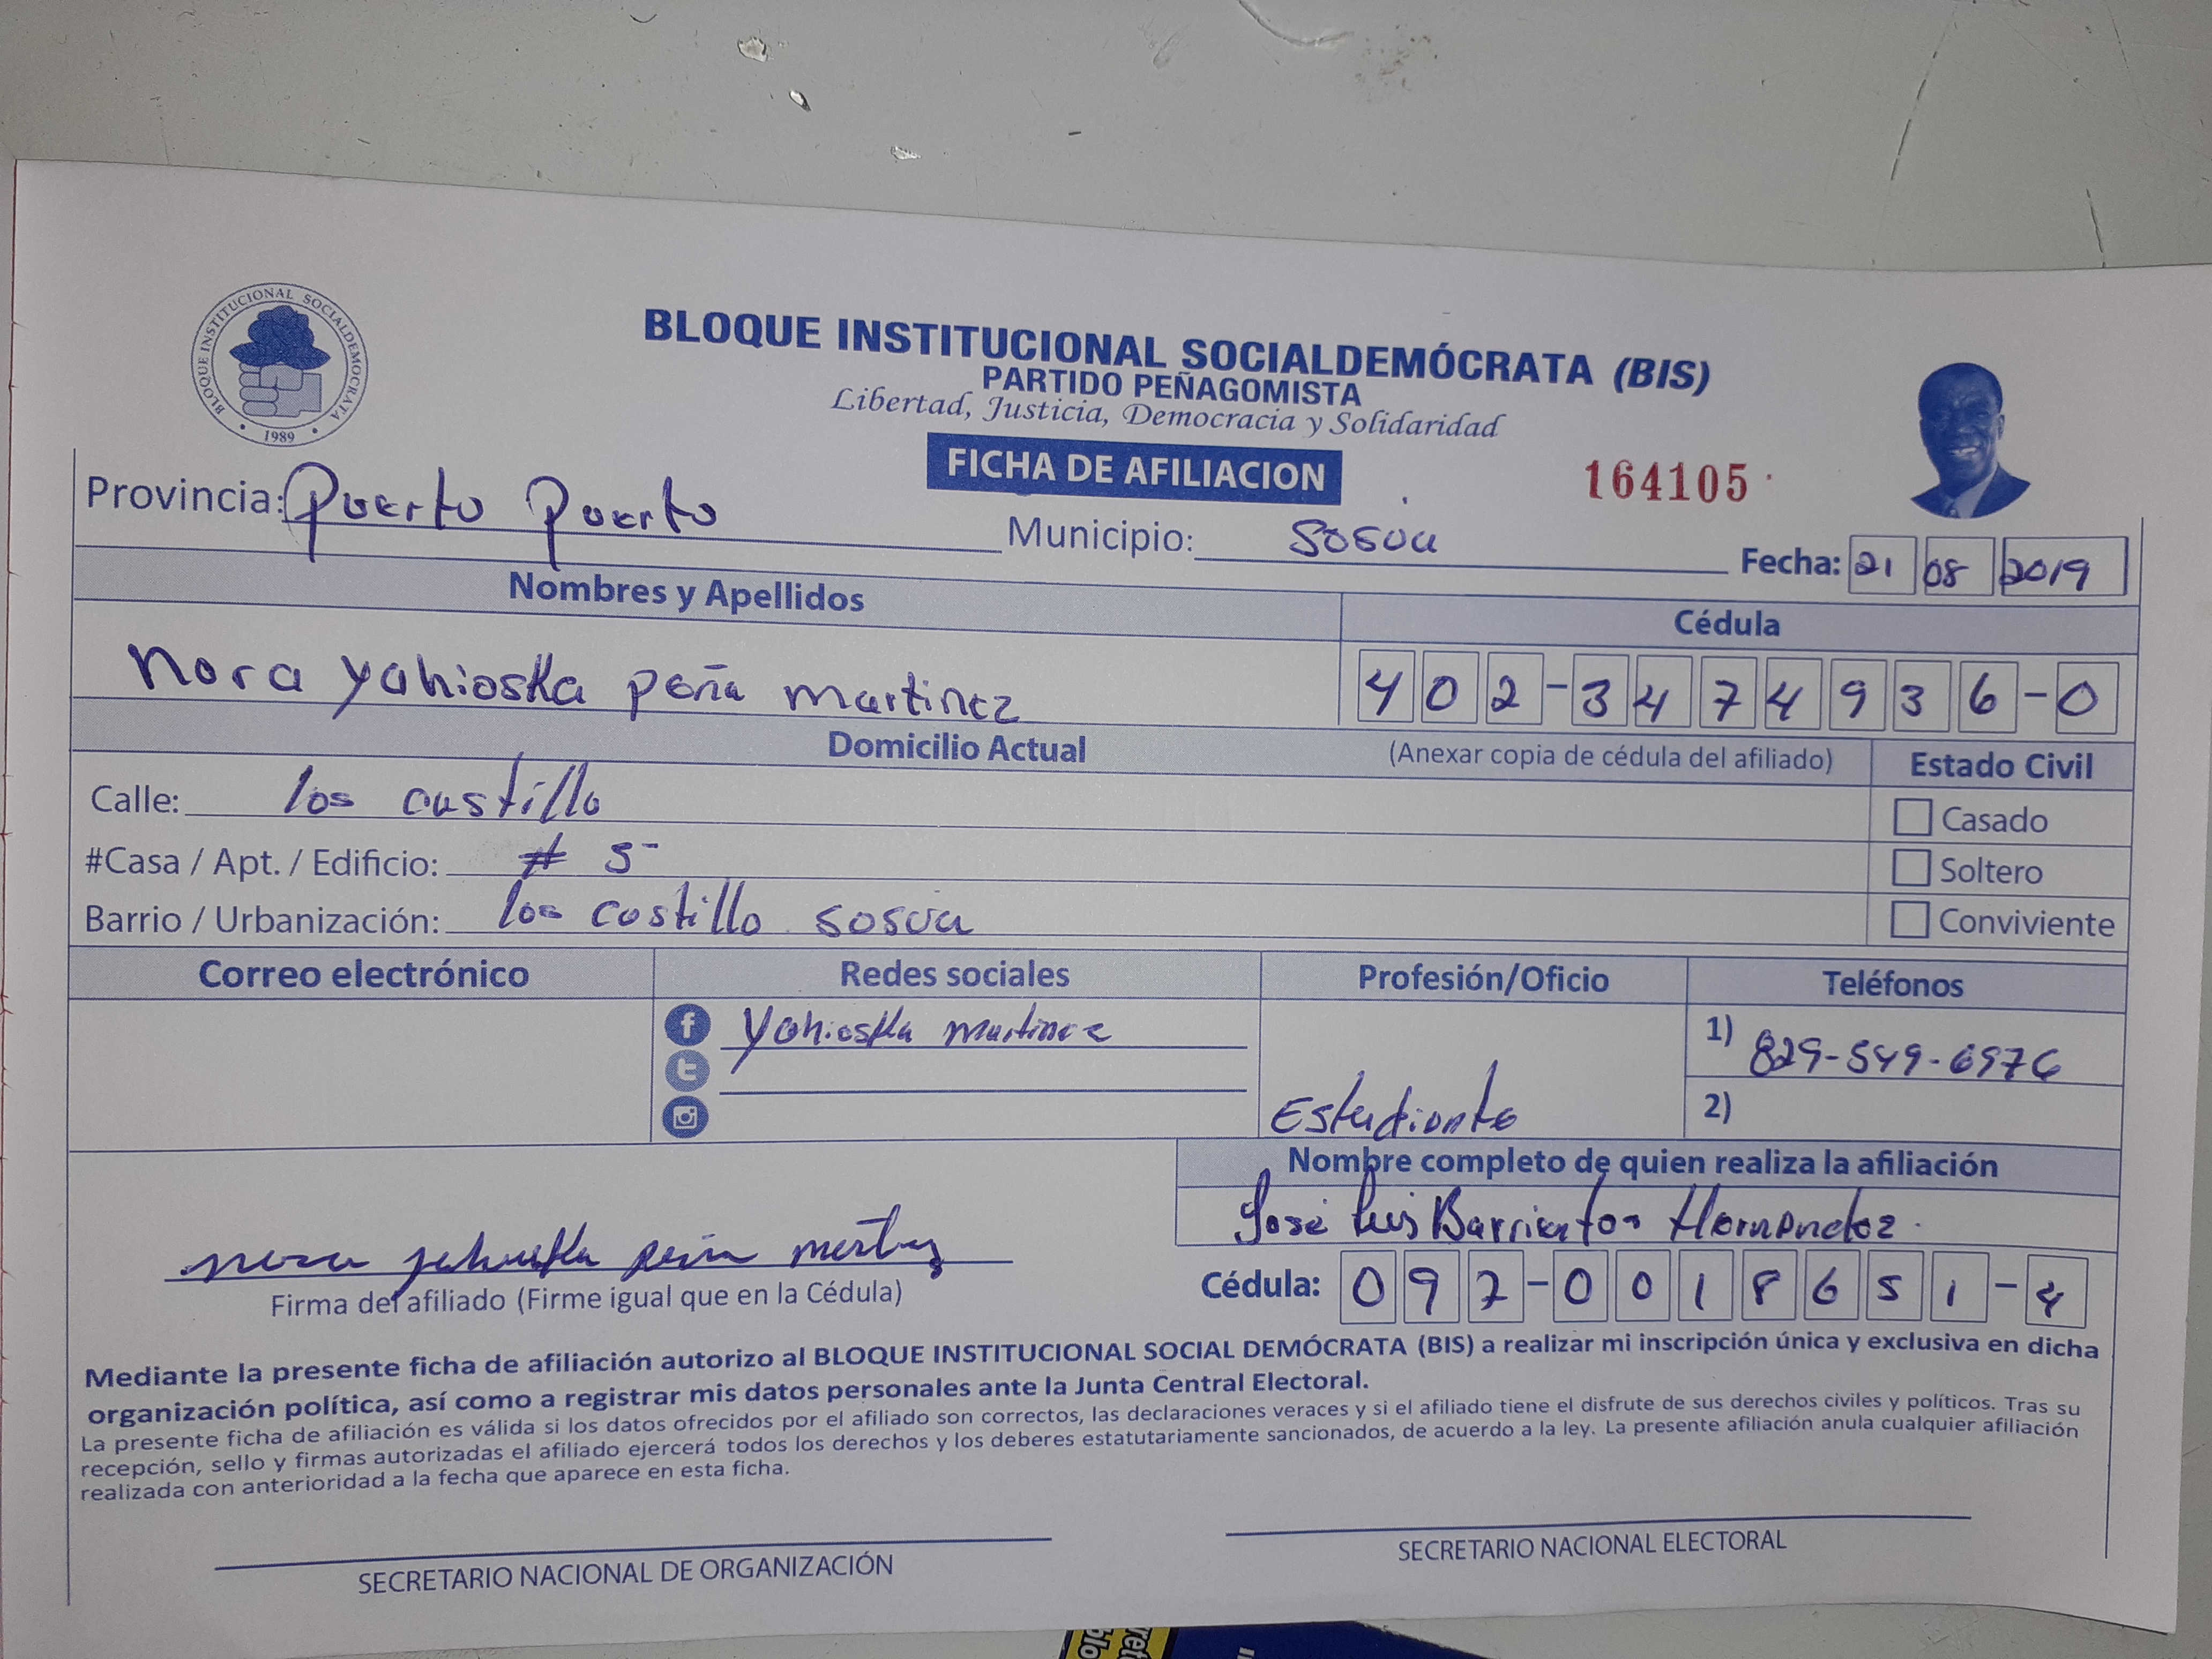 BLOQUE INSTITUCIONAL SOCIALDEMOCRATA
1989
BLOQUE INSTITUCIONAL SOCIALDEMÓCRATA (BIS)
PARTIDO PEÑAGOMISTA
Libertad, Justicia, Democracia y Solidaridad
FICHA DE AFILIACION
164105
Provincia: Puerto Puerto Municipio: Sosua Fecha: 21 08 2019
Nombres y Apellidos Cédula
Nora yahioska peña martinez 402-3474936-0
Domicilio Actual (Anexar copia de cédula del afiliado) Estado Civil
Calle: los castillo Casado
#Casa / Apt. / Edificio: # 5 Soltero
Barrio / Urbanización: los castillo sosua Conviviente
Correo electrónico Redes sociales Profesión/Oficio Teléfonos
f Yahioska martinez 1) 829-549-6976
t
Estudiante 2)
Nombre completo de quien realiza la afiliación
José Luis Barrientos Hernandez
nora yahioska peña martinez
Firma del afiliado (Firme igual que en la Cédula) Cédula: 097-0018651-4
Mediante la presente ficha de afiliación autorizo al BLOQUE INSTITUCIONAL SOCIAL DEMÓCRATA (BIS) a realizar mi inscripción única y exclusiva en dicha
organización política, así como a registrar mis datos personales ante la Junta Central Electoral.
La presente ficha de afiliación es válida si los datos ofrecidos por el afiliado son correctos, las declaraciones veraces y si el afiliado tiene el disfrute de sus derechos civiles y políticos. Tras su
recepción, sello y firmas autorizadas el afiliado ejercerá todos los derechos y los deberes estatutariamente sancionados, de acuerdo a la ley. La presente afiliación anula cualquier afiliación
realizada con anterioridad a la fecha que aparece en esta ficha.
SECRETARIO NACIONAL DE ORGANIZACIÓN SECRETARIO NACIONAL ELECTORAL